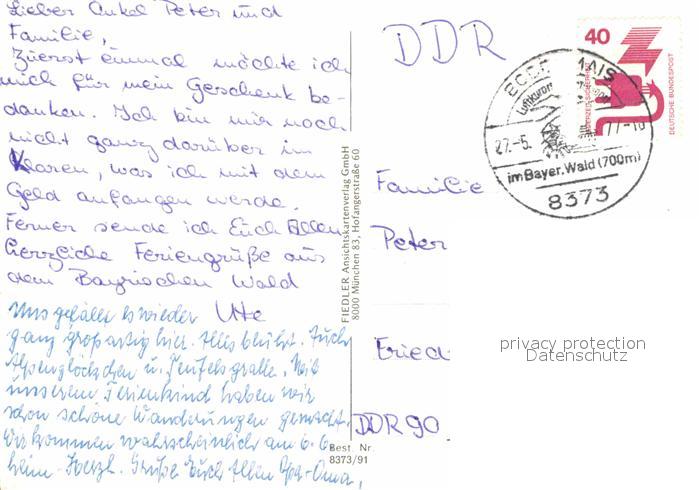 Lieber Onkel Peter und
Familie,
Zuerst einmal möchte ich
mich für mein Geschenk be-
danken. Ich bin mir noch
nicht ganz darüber im
Klaren, was ich mit dem
Geld anfangen werde.
Ferner sende ich Euch Allen
herzliche Feriengrüße aus
dem Bayrischen Wald
Ute
Uns gefällt es wieder
ganz großartig hier. Alles blüht. Auch
Alpenglöckchen u. Teufelskralle. Mit
unserem Ferienkind haben wir
schon schöne Wanderungen gemacht.
Wir kommen wahrscheinlich am 6.6.
heim. Herzl. Grüße Euch Allen Opa-Oma,
FIEDLER Ansichtskartenverlag GmbH
8000 München 83, Hofangerstraße 60
Best. Nr.
8373/91
DDR
40
DEUTSCHE BUNDESPOST
Luftkurort
27.-5.
77-10
im Bayer. Wald (700m)
8373
Familie
Peter
Fried
DDR 90
privacy protection
Datenschutz